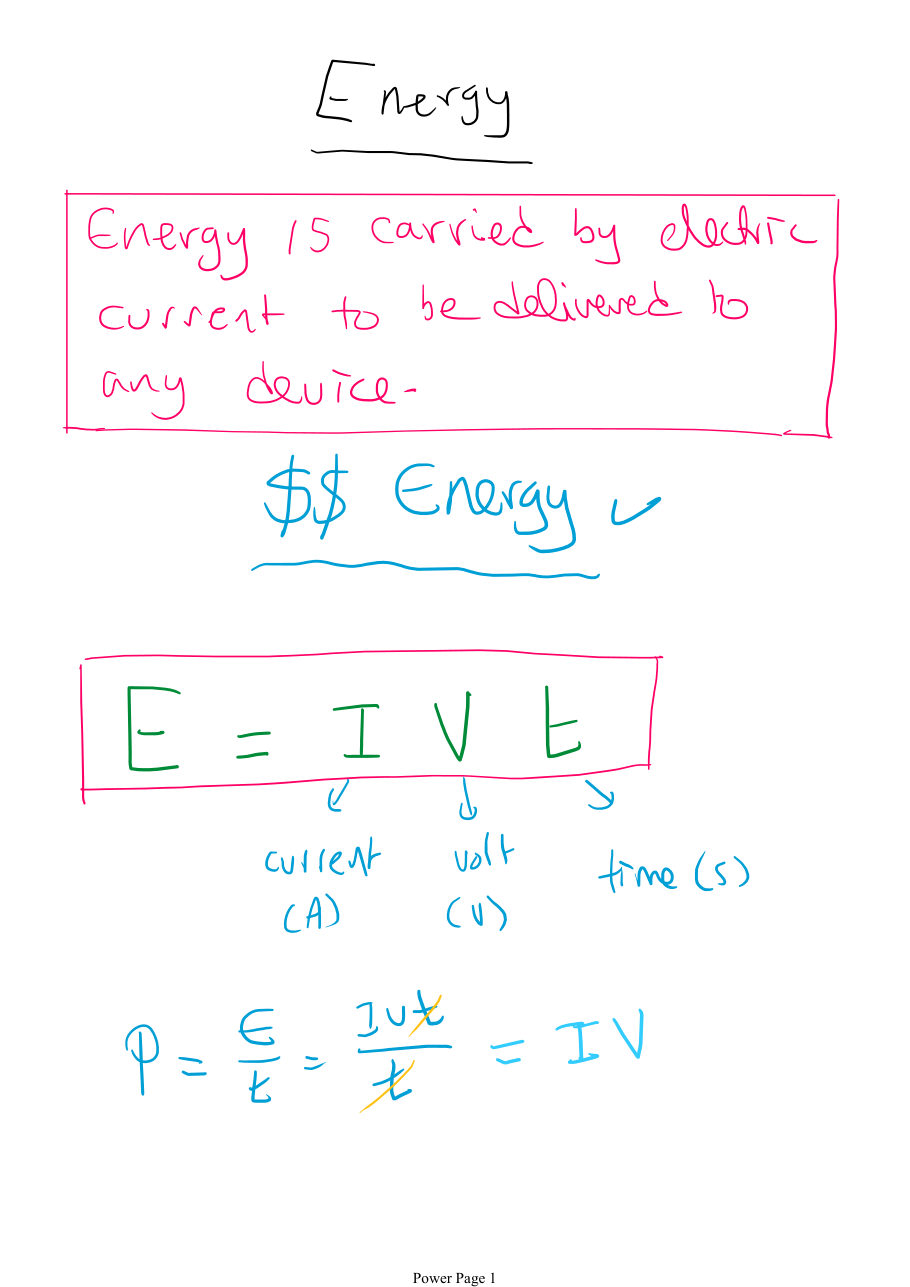 Energy
Energy is carried by electric
current to be delivered to
any device.
$$ Energy ✓
E = I V t
current volt time (s)
(A) (V)
P = E/t = IVt/t = IV
Power Page 1